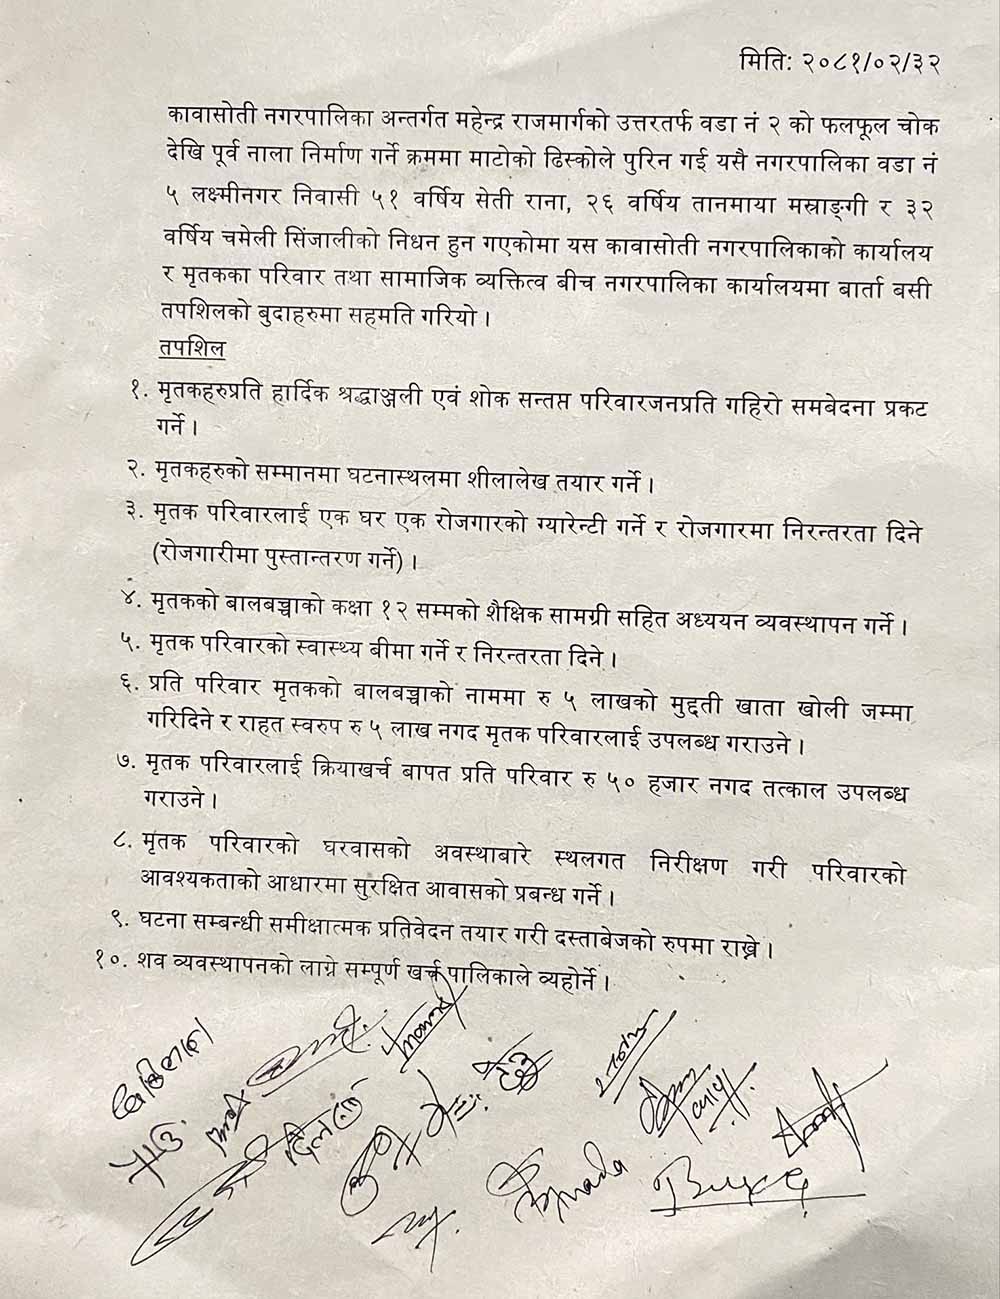 मिति: २०८१/०२/३२
कावासोती नगरपालिका अन्तर्गत महेन्द्र राजमार्गको उत्तरतर्फ वडा नं २ को फलफूल चोक
देखि पूर्व नाला निर्माण गर्ने क्रममा माटोको ढिस्कोले पुरिन गई यसै नगरपालिका वडा नं
५ लक्ष्मीनगर निवासी ५१ वर्षिय सेती राना, २६ वर्षिय तानमाया मस्राङ्गी र ३२
वर्षिय चमेली सिंजालीको निधन हुन गएकोमा यस कावासोती नगरपालिकाको कार्यालय
र मृतकका परिवार तथा सामाजिक व्यक्तित्व बीच नगरपालिका कार्यालयमा बार्ता बसी
तपशिलको बुदाहरुमा सहमति गरियो ।
तपशिल
१. मृतकहरुप्रति हार्दिक श्रद्धाञ्जली एवं शोक सन्तप्त परिवारजनप्रति गहिरो समबेदना प्रकट
गर्ने ।
२. मृतकहरुको सम्मानमा घटनास्थलमा शीलालेख तयार गर्ने ।
३. मृतक परिवारलाई एक घर एक रोजगारको ग्यारेन्टी गर्ने र रोजगारमा निरन्तरता दिने
(रोजगारीमा पुस्तान्तरण गर्ने) ।
४. मृतकको बालबच्चाको कक्षा १२ सम्मको शैक्षिक सामग्री सहित अध्ययन व्यवस्थापन गर्ने ।
५. मृतक परिवारको स्वास्थ्य बीमा गर्ने र निरन्तरता दिने ।
६. प्रति परिवार मृतकको बालबच्चाको नाममा रु ५ लाखको मुद्दती खाता खोली जम्मा
गरिदिने र राहत स्वरुप रु ५ लाख नगद मृतक परिवारलाई उपलब्ध गराउने ।
७. मृतक परिवारलाई क्रियाखर्च बापत प्रति परिवार रु ५० हजार नगद तत्काल उपलब्ध
गराउने ।
८. मृतक परिवारको घरवासको अवस्थाबारे स्थलगत निरीक्षण गरी परिवारको
आवश्यकताको आधारमा सुरक्षित आवासको प्रबन्ध गर्ने ।
९. घटना सम्बन्धी समीक्षात्मक प्रतिवेदन तयार गरी दस्ताबेजको रुपमा राख्ने ।
१०. शव व्यवस्थापनको लाग्ने सम्पूर्ण खर्च पालिकाले व्यहोर्ने ।